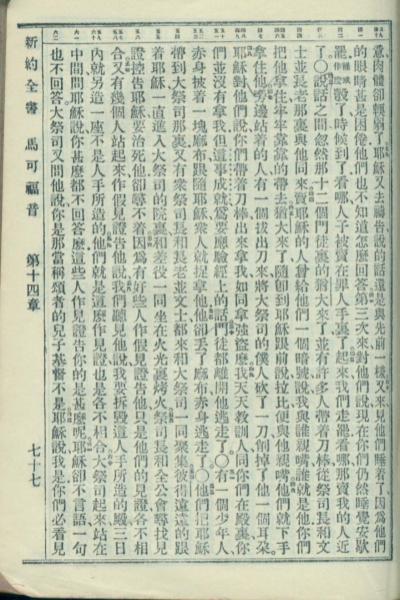 意肉體卻輭弱了耶穌又去禱告說的話還是與先前一樣又來見他們睡着了因爲他們
的眼睛甚是困倦他們也不知道怎麽回答第三次來對他們說現在你們仍然睡覺安歇
罷彀了時候到了看哪人子被賣在罪人手裏了起來我們走罷看哪那賣我的人近
了〇說話之間忽然那十二個門徒裏的猶大來了並有許多人帶着刀棒從祭司長和文
士並長老那裏與他同來賣耶穌的人曾給他們一個暗號說我與誰親嘴誰就是他你們
把他拿住牢牢靠靠的帶去猶大來了隨卽到耶穌跟前說拉比便與他親嘴他們就下手
拿住他旁邊站着的人有一個拔出刀來將大祭司的僕人砍了一刀削掉了他一個耳朶
耶穌對他們說你們帶着刀棒出來拿我如同拿強盜麽我天天教訓人同你們在殿裏你
們並沒有拿我但這事成就爲要應驗經上的話門徒都離開他逃走了〇有一個少年人
赤身披着一塊麻布跟隨耶穌衆人就捉拿他他卻丟了麻布赤身逃走了〇他們把耶穌
帶到大祭司那裏又有衆祭司長和長老並文士都來和大祭司一同聚集彼得遠遠的跟
着耶穌一直進入大祭司的院裏和差役一同坐在火光裏烤火祭司長和全公會尋找見
證控告耶穌要治死他卻尋不着因爲有好些人作假見證告他只是他們的見證各不相
合又有幾個人站起來作假見證告他說我們聽見他說我要拆毀這人手所造的殿三日
內就另造一座不是人手所造的他們就是這麽作見證也是各不相合大祭司起來站在
中間問耶穌說你甚麽都不回答麽這些人作見證告你的是甚麽呢耶穌卻不言語一句
也不回答大祭司又問他說你是那當稱頌者的兒子基督不是耶穌說我是你們必看見
新約全書 馬可福音 第十四章 七十七